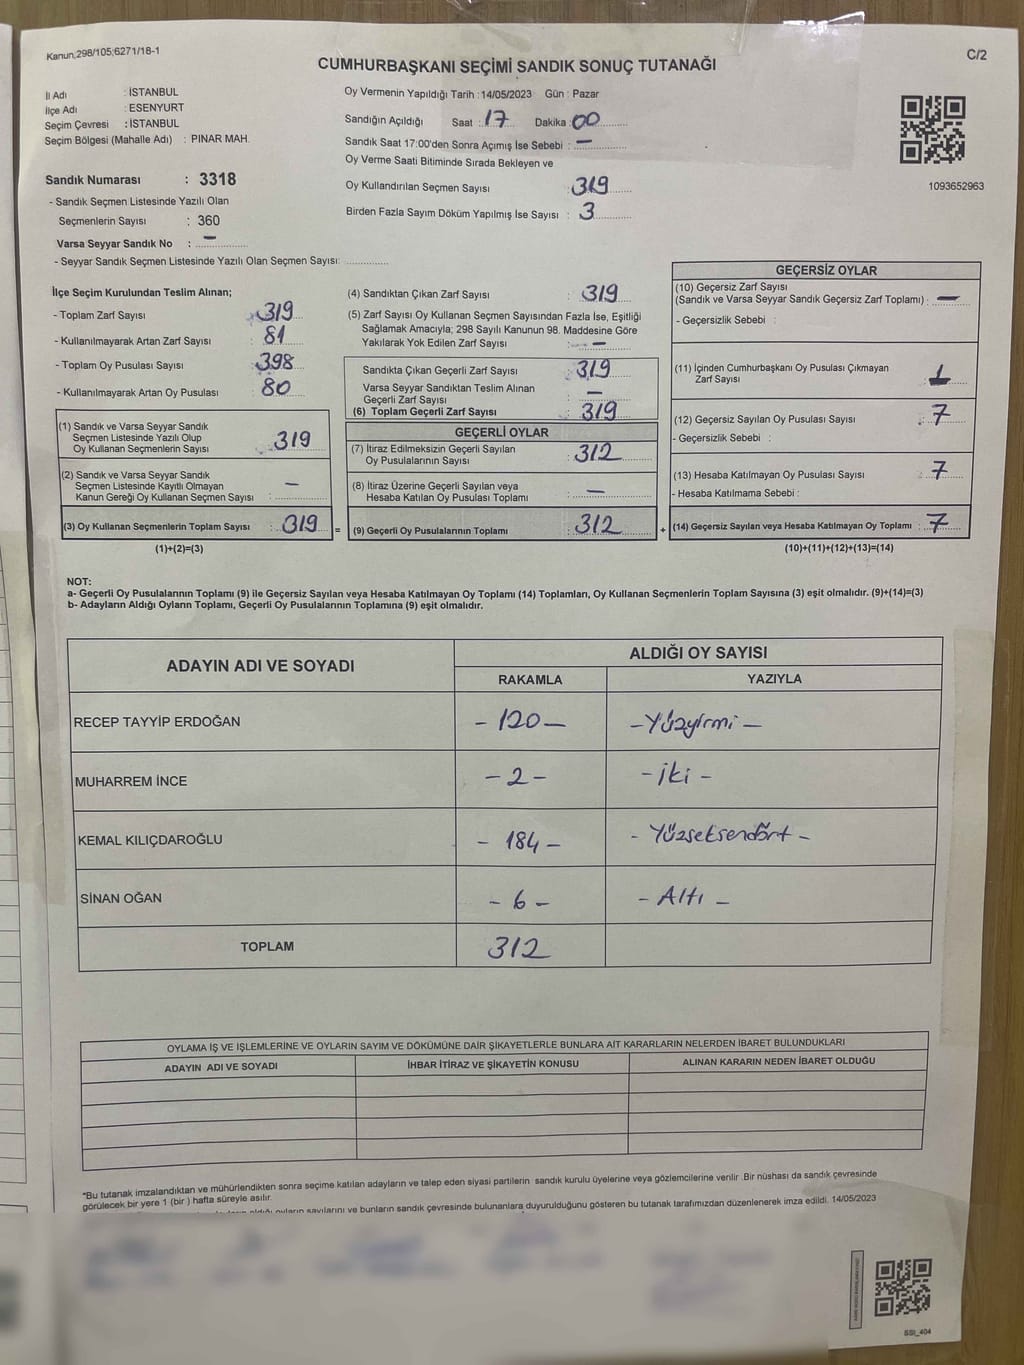 Kanun,298/105,6271/18-1
C/2
CUMHURBAŞKANI SEÇİMİ SANDIK SONUÇ TUTANAĞI
İl Adı : İSTANBUL
İlçe Adı : ESENYURT
Seçim Çevresi : İSTANBUL
Seçim Bölgesi (Mahalle Adı) : PINAR MAH.
Sandık Numarası : 3318
- Sandık Seçmen Listesinde Yazılı Olan
Seçmenlerin Sayısı : 360
Varsa Seyyar Sandık No : —
- Seyyar Sandık Seçmen Listesinde Yazılı Olan Seçmen Sayısı: ..............
Oy Vermenin Yapıldığı Tarih : 14/05/2023 Gün : Pazar
Sandığın Açıldığı Saat : 17 Dakika : 00
Sandık Saat 17:00'den Sonra Açımış İse Sebebi : —
Oy Verme Saati Bitiminde Sırada Bekleyen ve
Oy Kullandırılan Seçmen Sayısı : 319
Birden Fazla Sayım Döküm Yapılmış İse Sayısı : 3
1093652963
İlçe Seçim Kurulundan Teslim Alınan;
- Toplam Zarf Sayısı : 319
- Kullanılmayarak Artan Zarf Sayısı : 81
- Toplam Oy Pusulası Sayısı : 398
- Kullanılmayarak Artan Oy Pusulası : 80
(1) Sandık ve Varsa Seyyar Sandık
Seçmen Listesinde Yazılı Olup
Oy Kullanan Seçmenlerin Sayısı : 319
(2) Sandık ve Varsa Seyyar Sandık
Seçmen Listesinde Kayıtlı Olmayan
Kanun Gereği Oy Kullanan Seçmen Sayısı : —
(3) Oy Kullanan Seçmenlerin Toplam Sayısı : 319 =
(1)+(2)=(3)
(4) Sandıktan Çıkan Zarf Sayısı : 319
(5) Zarf Sayısı Oy Kullanan Seçmen Sayısından Fazla İse, Eşitliği
Sağlamak Amacıyla; 298 Sayılı Kanunun 98. Maddesine Göre
Yakılarak Yok Edilen Zarf Sayısı : —
Sandıkta Çıkan Geçerli Zarf Sayısı : 319
Varsa Seyyar Sandıktan Teslim Alınan
Geçerli Zarf Sayısı : —
(6) Toplam Geçerli Zarf Sayısı : 319
GEÇERLİ OYLAR
(7) İtiraz Edilmeksizin Geçerli Sayılan
Oy Pusulalarının Sayısı : 312
(8) İtiraz Üzerine Geçerli Sayılan veya
Hesaba Katılan Oy Pusulası Toplamı : —
(9) Geçerli Oy Pusulalarının Toplamı : 312 +
GEÇERSİZ OYLAR
(10) Geçersiz Zarf Sayısı
(Sandık ve Varsa Seyyar Sandık Geçersiz Zarf Toplamı) : —
- Geçersizlik Sebebi :
(11) İçinden Cumhurbaşkanı Oy Pusulası Çıkmayan
Zarf Sayısı :
(12) Geçersiz Sayılan Oy Pusulası Sayısı : 7
- Geçersizlik Sebebi :
(13) Hesaba Katılmayan Oy Pusulası Sayısı : 7
- Hesaba Katılmama Sebebi :
(14) Geçersiz Sayılan veya Hesaba Katılmayan Oy Toplamı : 7
(10)+(11)+(12)+(13)=(14)
NOT:
a- Geçerli Oy Pusulalarının Toplamı (9) ile Geçersiz Sayılan veya Hesaba Katılmayan Oy Toplamı (14) Toplamları, Oy Kullanan Seçmenlerin Toplam Sayısına (3) eşit olmalıdır. (9)+(14)=(3)
b- Adayların Aldığı Oyların Toplamı, Geçerli Oy Pusulalarının Toplamına (9) eşit olmalıdır.
ADAYIN ADI VE SOYADI
ALDIĞI OY SAYISI
RAKAMLA YAZIYLA
RECEP TAYYİP ERDOĞAN - 120 - - Yüzyirmi -
MUHARREM İNCE - 2 - - iki -
KEMAL KILIÇDAROĞLU - 184 - - Yüzseksendört -
SİNAN OĞAN - 6 - - Altı -
TOPLAM 312
OYLAMA İŞ VE İŞLEMLERİNE VE OYLARIN SAYIM VE DÖKÜMÜNE DAİR ŞİKAYETLERLE BUNLARA AİT KARARLARIN NELERDEN İBARET BULUNDUKLARI
ADAYIN ADI VE SOYADI İHBAR İTİRAZ VE ŞİKAYETİN KONUSU ALINAN KARARIN NEDEN İBARET OLDUĞU
*Bu tutanak imzalandıktan ve mühürlendikten sonra seçime katılan adayların ve talep eden siyasi partilerin sandık kurulu üyelerine veya gözlemcilerine verilir. Bir nüshası da sandık çevresinde
görülecek bir yere 1 (bir ) hafta süreyle asılır.
aldığı oyların sayılarını ve bunların sandık çevresinde bulunanlara duyurulduğunu gösteren bu tutanak tarafımızdan düzenlenerek imza edildi. 14/05/2023
SSI_404